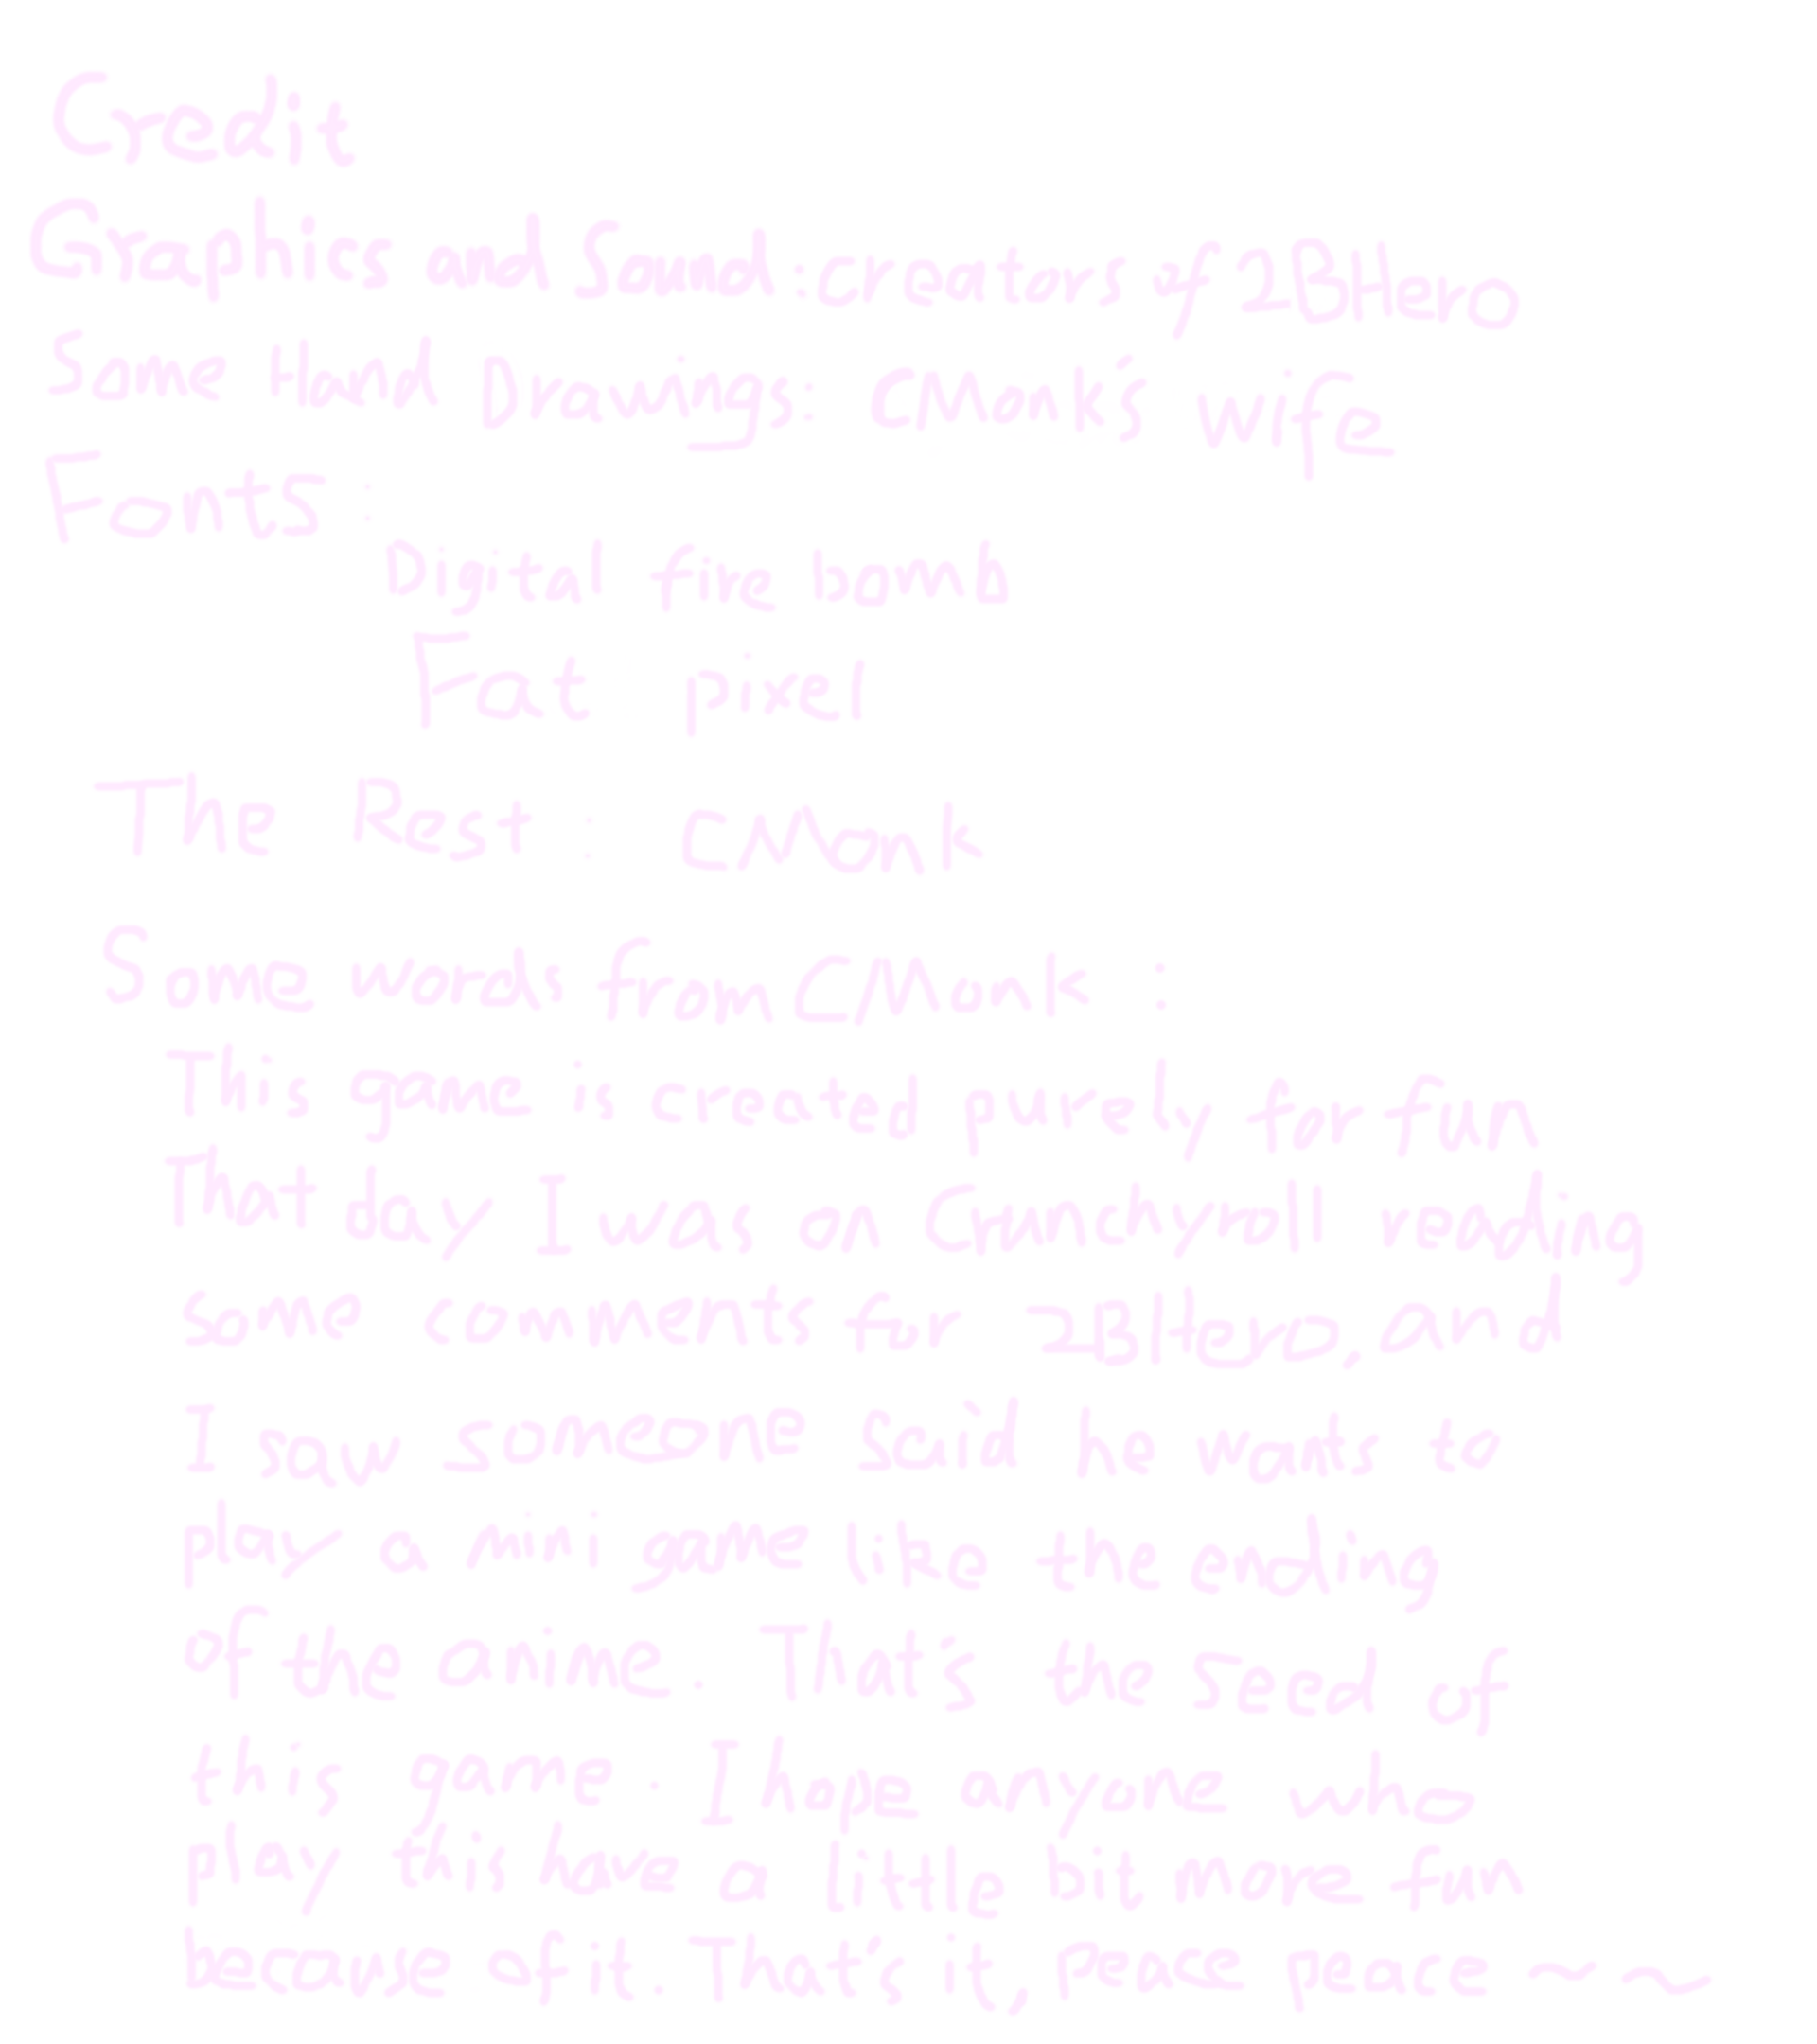 Credit
Graphics and Sound: creators of 2BHero
Some Hand Drawings: CMonk's wife
Fonts:
Digital fire bomb
Fat pixel
The Rest: CMonk
Some words from CMonk:
This game is created purely for fun
That day I was on Crunchyroll reading
some comments for 2BHero, and
I saw someone said he wants to
play a mini game like the ending
of the anime. That's the seed of
this game. I hope anyone who
play this have a little bit more fun
because of it. That's it, peace peace~~